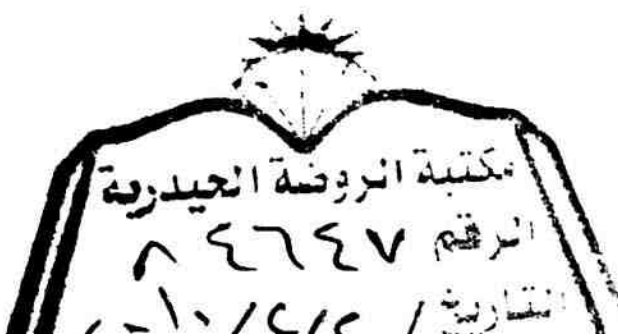 مكتبة الروضة الحيدرية
الرقم ٨٤٦٤٧
التاريخ